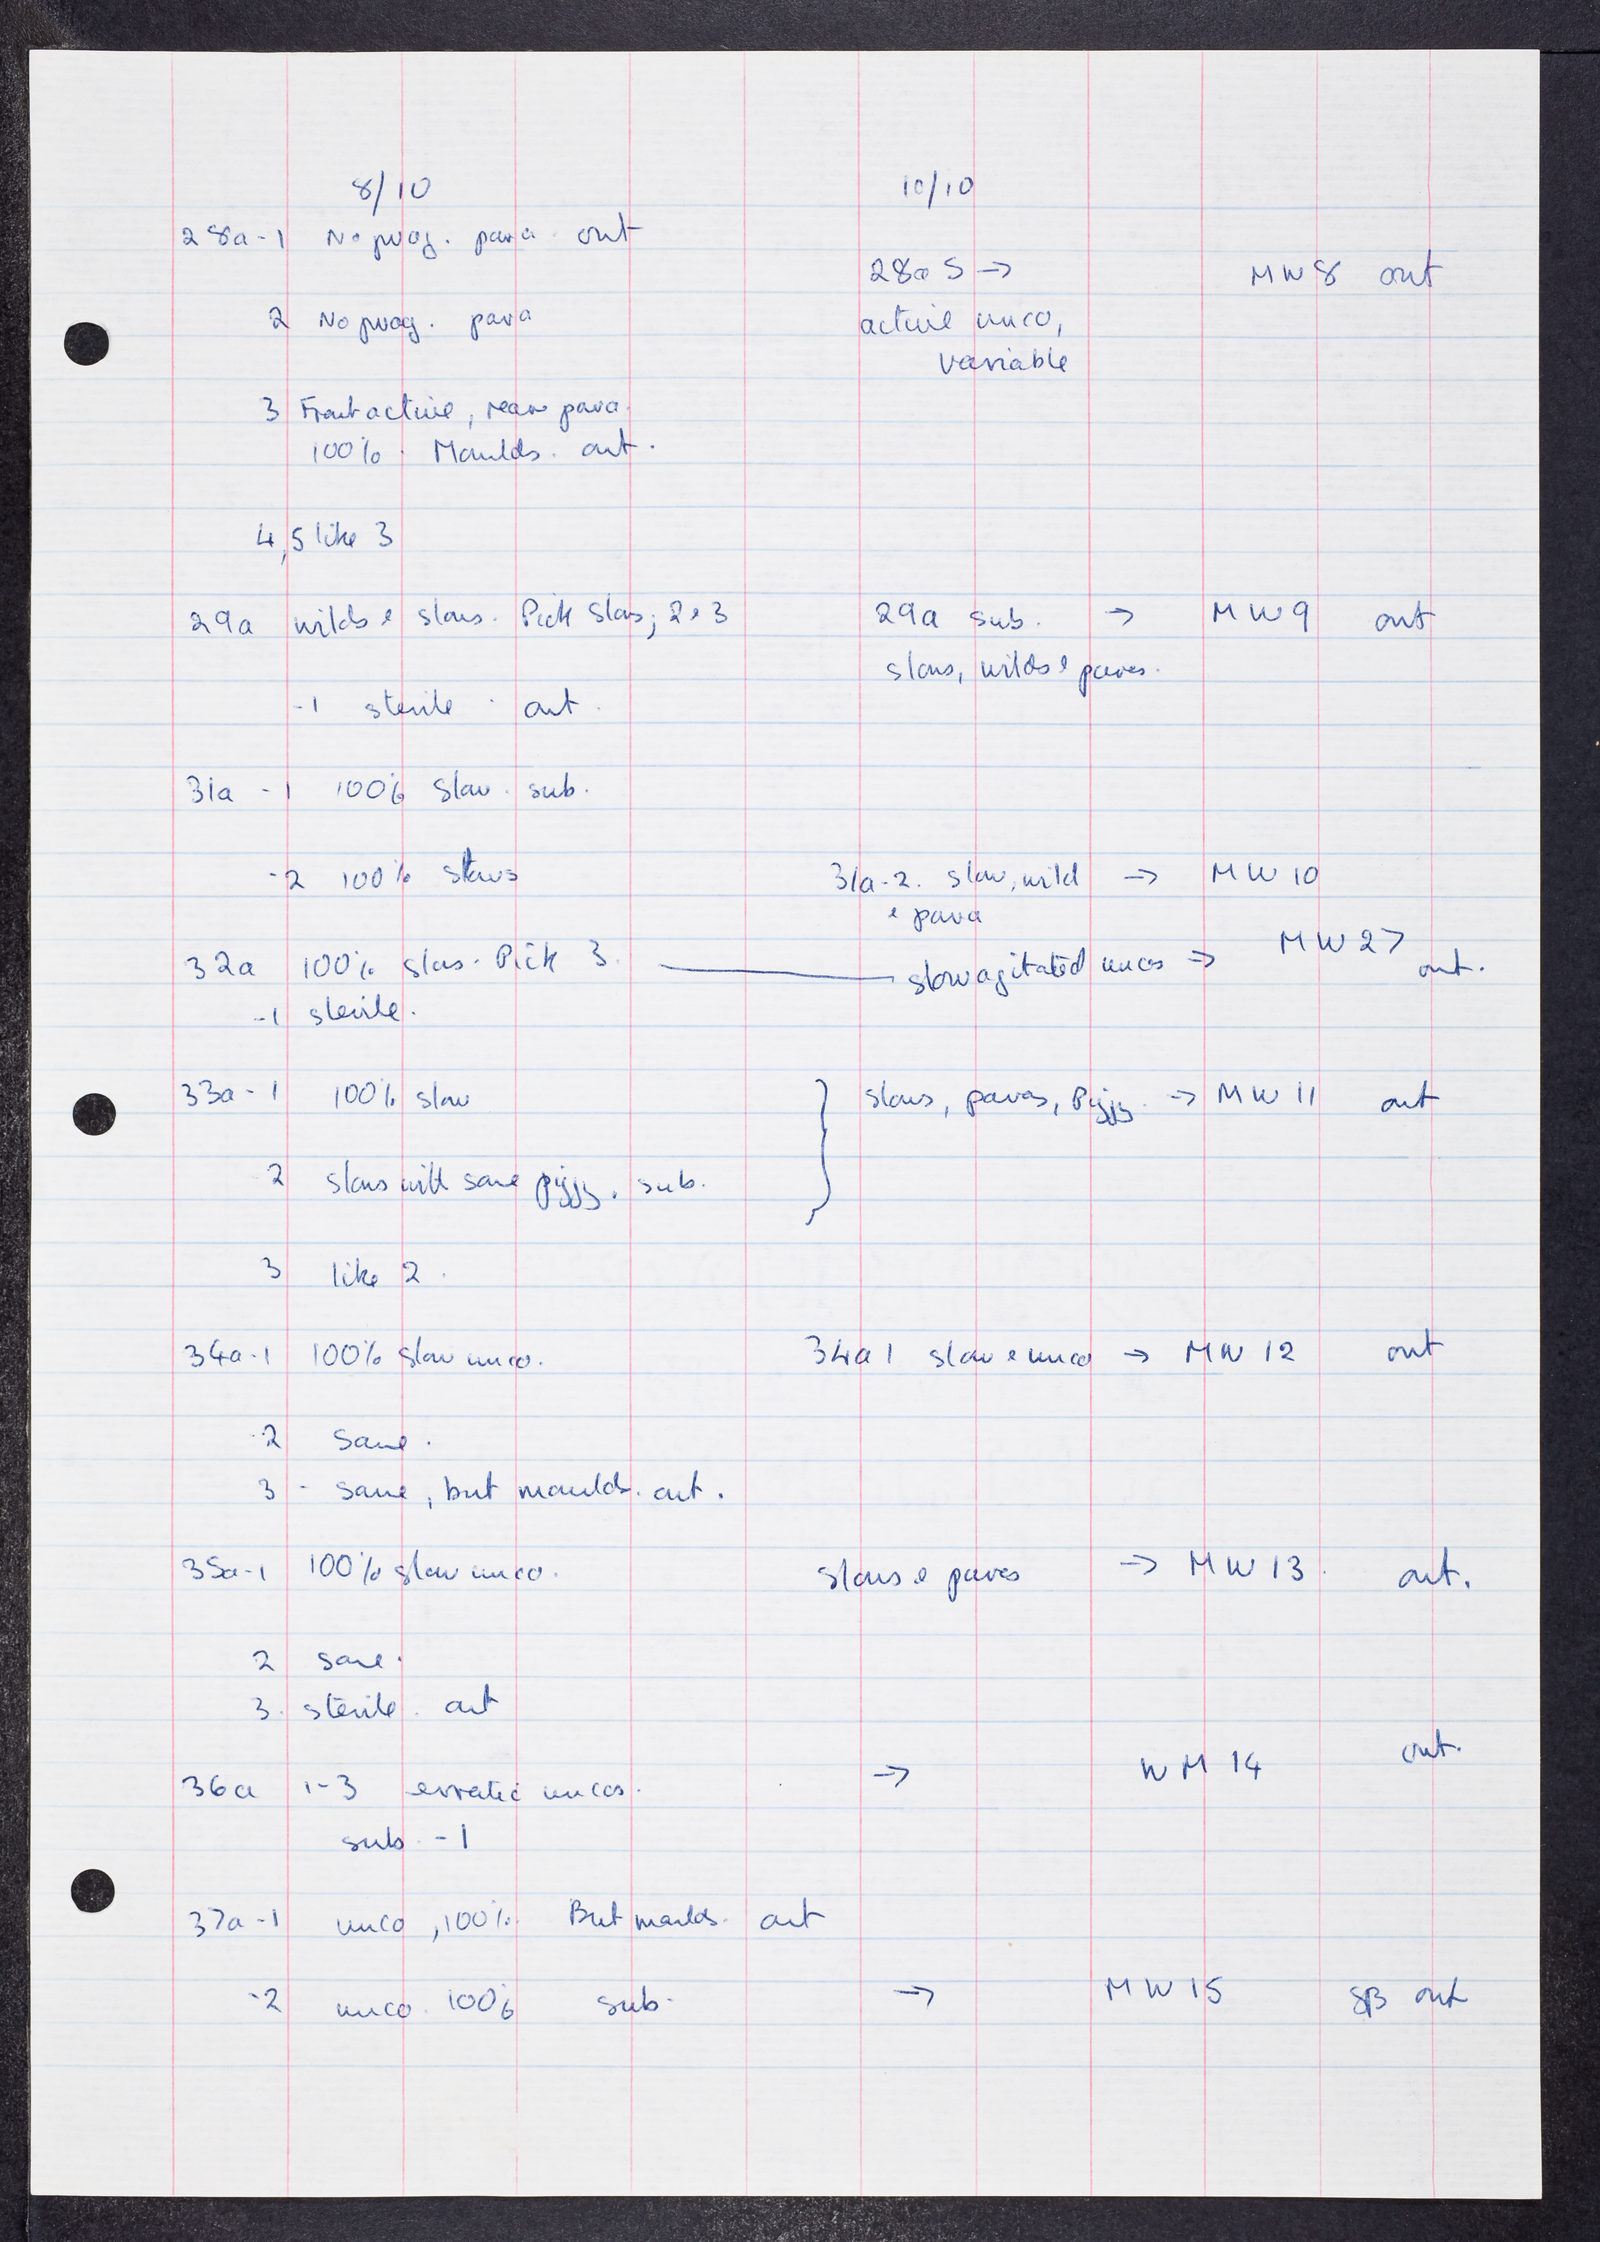 8/10 10/10
28a-1 No prog. para. out
28a 5 → MW8 out
2 No prog. para
active unco,
variable
3 Front active, rear para.
100%. Moulds. out.
4,5 like 3
29a wilds & slows. Pick slows; 2 & 3 29a sub. → MW9 out
slows, wilds & paras.
-1 sterile. out.
31a -1 100% slow. sub.
-2 100% slows 31a-2. slow, wild → MW10
& para
32a 100% slows. Pick 3. slow agitated uncos → MW27 out.
-1 sterile.
33a-1 100% slow } slows, paras, Piggy. → MW11 out
2 slows with some piggy. sub.
3 like 2.
34a-1 100% slow unco. 34a1 slow & unco → MW12 out
-2 same.
3 - same, but moulds. out.
35a-1 100% slow unco. slows & paras → MW13. out.
2 same.
3. sterile. out
36a 1-3 erratic uncos. → WM14 out.
sub -1
37a-1 unco, 100%. But moulds. out
-2 unco. 100% sub. → MW15 out